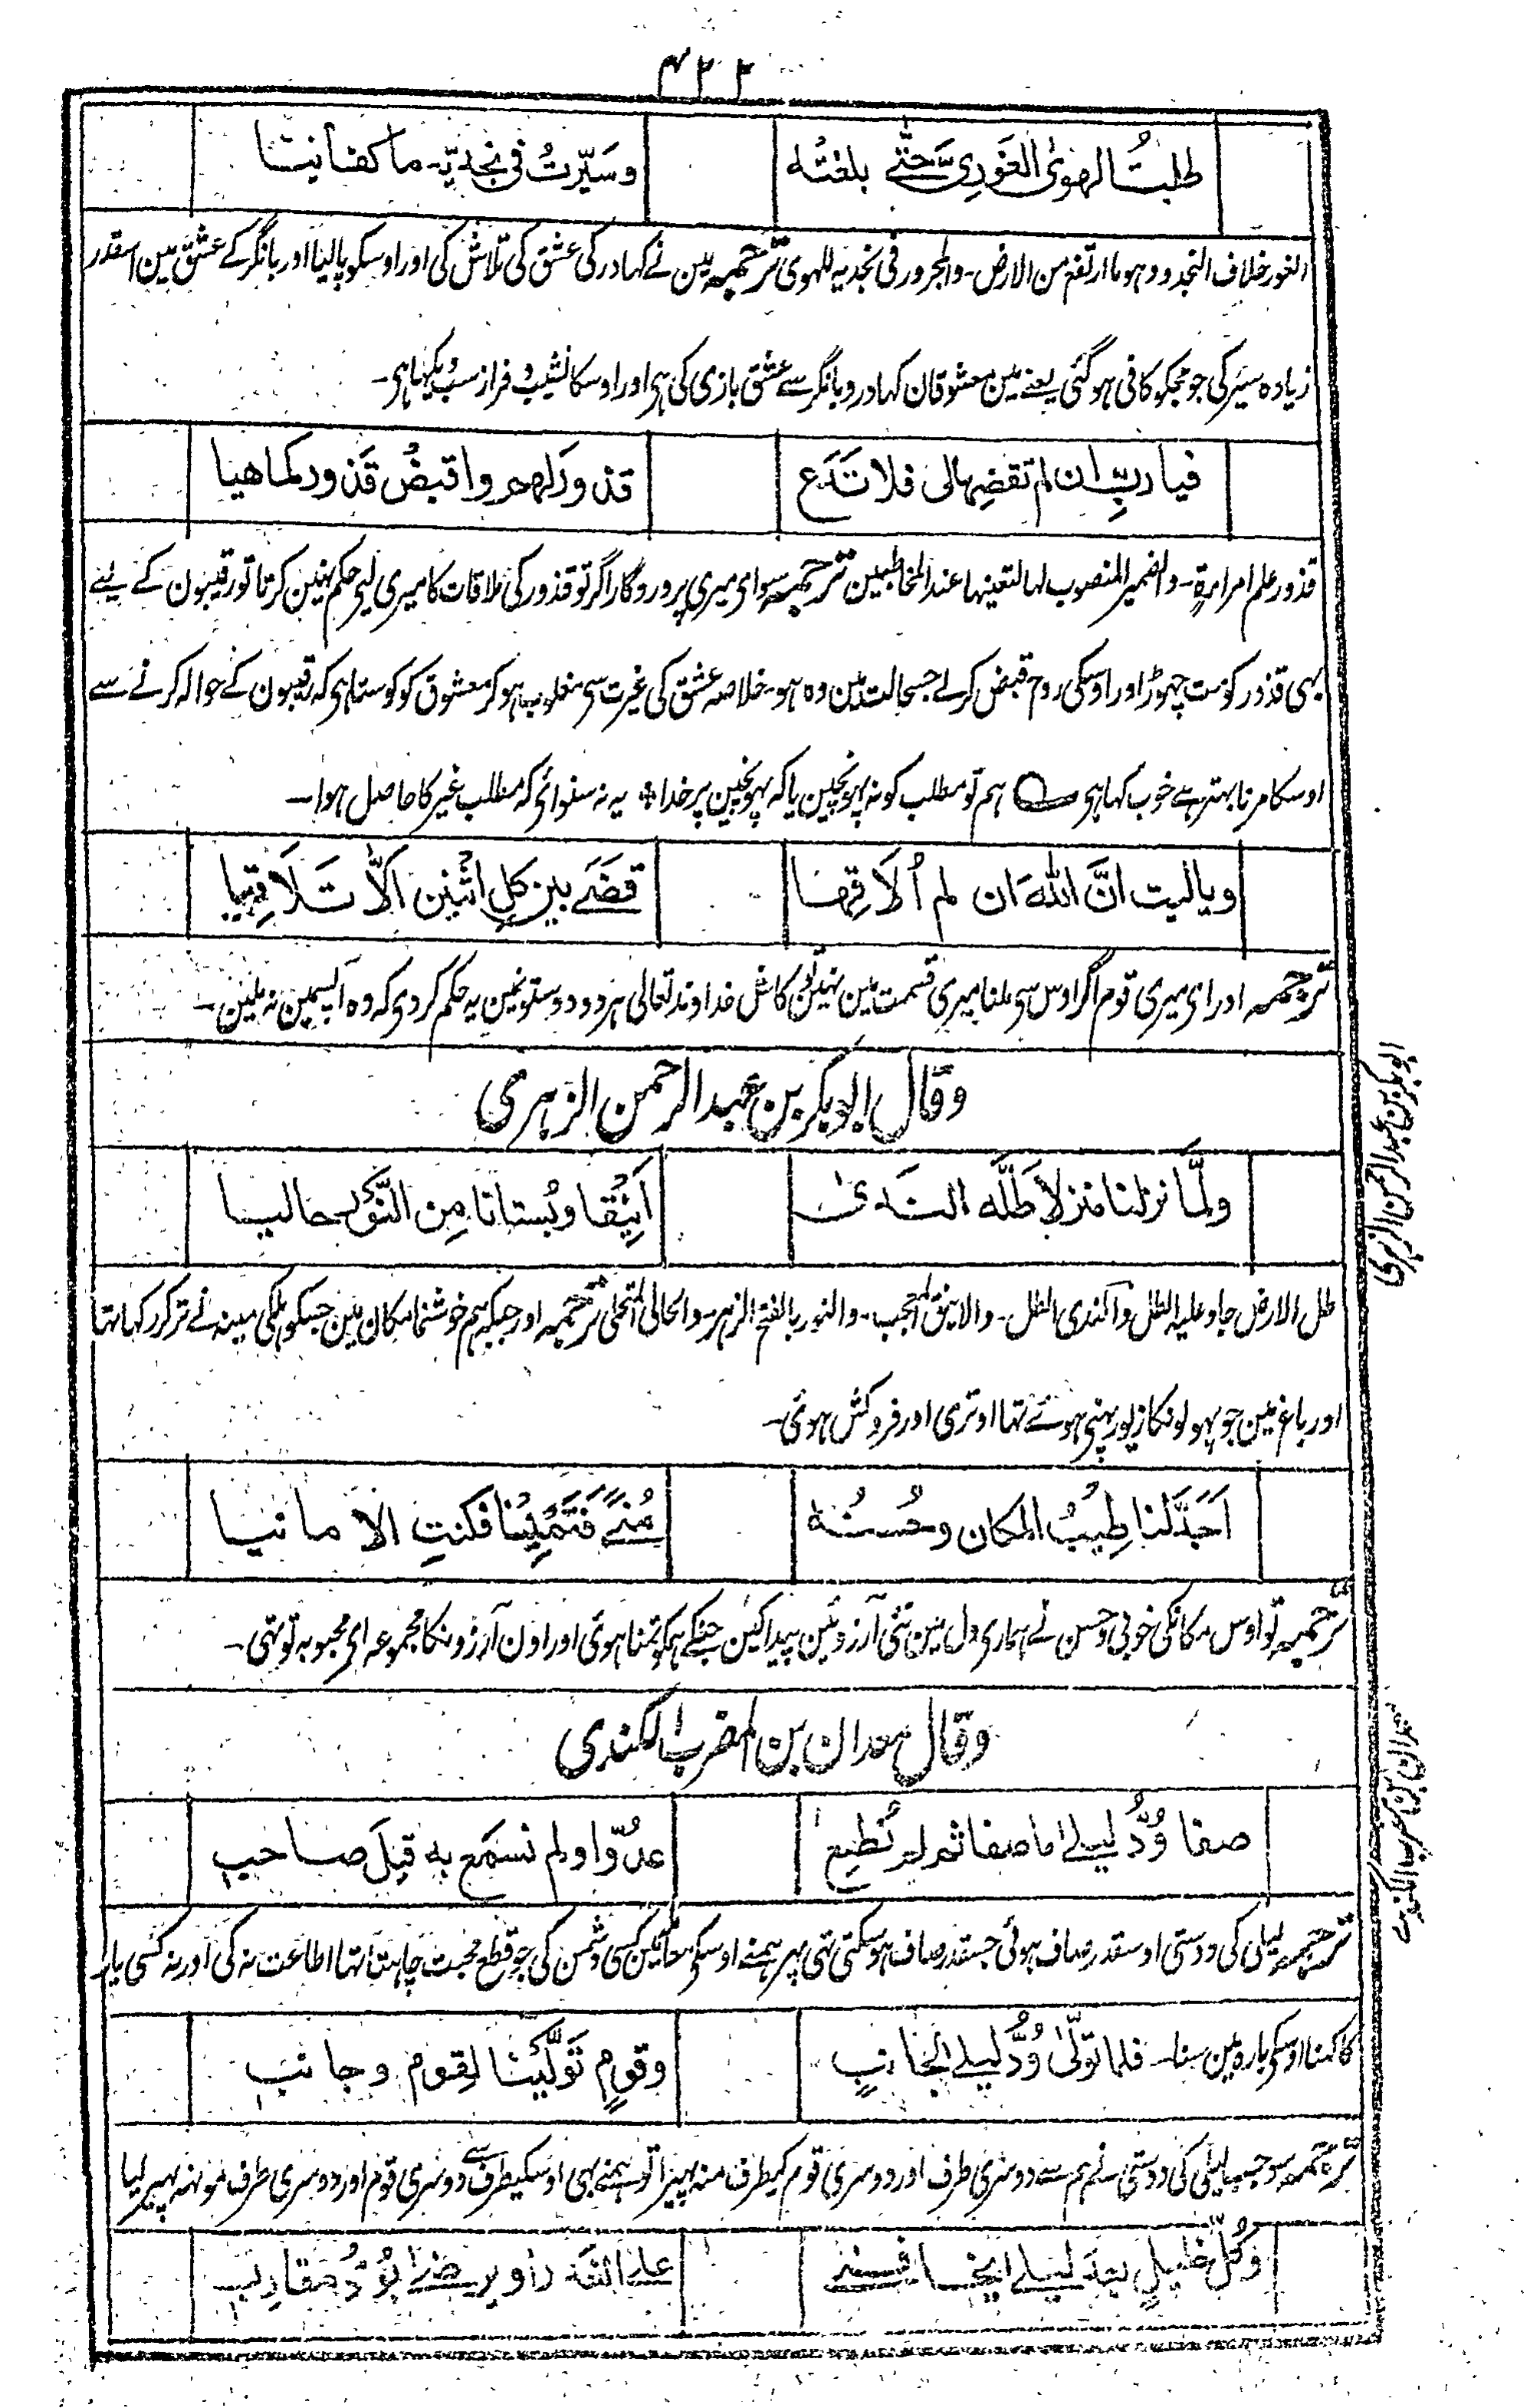 ۴۲۲
طلبتُ الهوىٰ الغَورِىَّ حتّٰے بلغتُه وسَيّرتُ فى نجديّه ما كفانيا
الغور خلاف النجد وہو ما ارتفع من الارض۔ والمجرور فی نجدیہ للہوی ترجمہ مین نے کہادر کی عشق کی تلاش کی اور اوسکو پالیا اور بانگر کے عشق مین اسقدر
زیادہ سیر کی جو مجکو کافی ہو گئی یعنے مین معشوقان کہادر و بانگر سے عشق بازی کی ہی اور اوسکا نشیب و فراز سب دیکہا ہی۔
فيا ربِّ ان لم تقضِها لى فلا تَدَع قذورَ لهم واقبضْ قذور كما هيا
قذور علم امراةٍ۔ والضمیر المنصوب لہا لتعینہا عند المخاطبین ترجمہ سو ای میری پروردگار اگر تو قذور کی ملاقات کا میری لیی حکم نہین کرتا تو رقیبون کے لیے
بہی قذور کو مت چہوڑ اور اوسکی روح قبض کر لے جسحالت مین وہ ہو۔ خلاصہ عشق کی غیرت سی مغلوب ہو کر معشوق کو کوستا ہی کہ رقیبون کے حوالہ کرنے سے
اوسکا مرنا بہتر ہے خوب کہا ہی ہم تو مطلب کو نہ پہونچین یا کہ پہونچین پر خدا٭ یہ نہ سنوائی کہ مطلب غیر کا حاصل ہوا۔
ويا ليت انَّ اللهَ ان لم اُلاقِها قضَے بين كلِ اثنين الّا تَلاقِيا
ترجمہ اور ای میری قوم اگر اوس سی ملنا میری قسمت مین نہین کاش خداوند تعالی ہر دو دوستونمین یہ حکم کر دی کہ وہ آپسمین نہ ملین۔
وقال ابو بکر بن عبد الرحمن الزہری
ابو بکر بن عبد الرحمن الزہری
ولمّا نزلنا منزلاً طَلَّه الندىٰ اَنِيْقا وبُستانا مِن النَّوْر حاليا
طل الارض جاد علیہا الطل والندی الطل۔ والانیق المعجب۔ والنور بالفتح الزہر۔ والحالی المتحلی ترجمہ اور جبکہ ہم خوشنما مکان مین جسکو ہلکی مینہ نے تر کر رکہا تہا
اور باغ مین جو پہولونکا زیور پہنی ہوئے تہا اوتری اور فروکش ہوئی۔
اَجَدَّ لنا طِيبُ المكان وحُسنُه مُنًے فتمنّينا فكنتِ الامانيا
ترجمہ تو اوس مکانکی خوبی و حسن نے ہماری دل مین نئی آرزوئین پیدا کین جنکے ہمکو تمنا ہوئی اور اون آرزونکا مجموعہ ای محبوبہ تو تہی۔
وقال معدان بن المضرب الکندی
معدان بن المضرب الکندی
صفا وُدُّ ليلے ما صفا ثم لم نُطِع عدُوّا ولم نسمَع به قيلَ صاحبِ
ترجمہ لیلی کی دوستی اوسقدر صاف ہوئی جسقدر صاف ہو سکتی تہی پہر ہمنے اوسکی معاملین کسی دشمن کی جو قطع محبت چاہتا تہا اطاعت نہ کی اور نہ کسی یار
کا کہنا اوسکی بارہ مین سنا۔ فلما تولّىٰ وُدُّ ليلے لجانبٍ وقومٍ تَوَلَّينا لقومٍ وجانبِ
ترجمہ سو جب لیلی کی دوستی نے ہم سے دوسری طرف اور دوسری قوم کیطرف منہ پہیرا تو ہمنے بہی اوسکیطرف سے دوسری قوم اور دوسری طرف مونہہ پہیر لیا
وكلُّ خليلٍ بعدَ ليلے يخافنے علے الغدر او يرضے بوُدٍّ مقارب